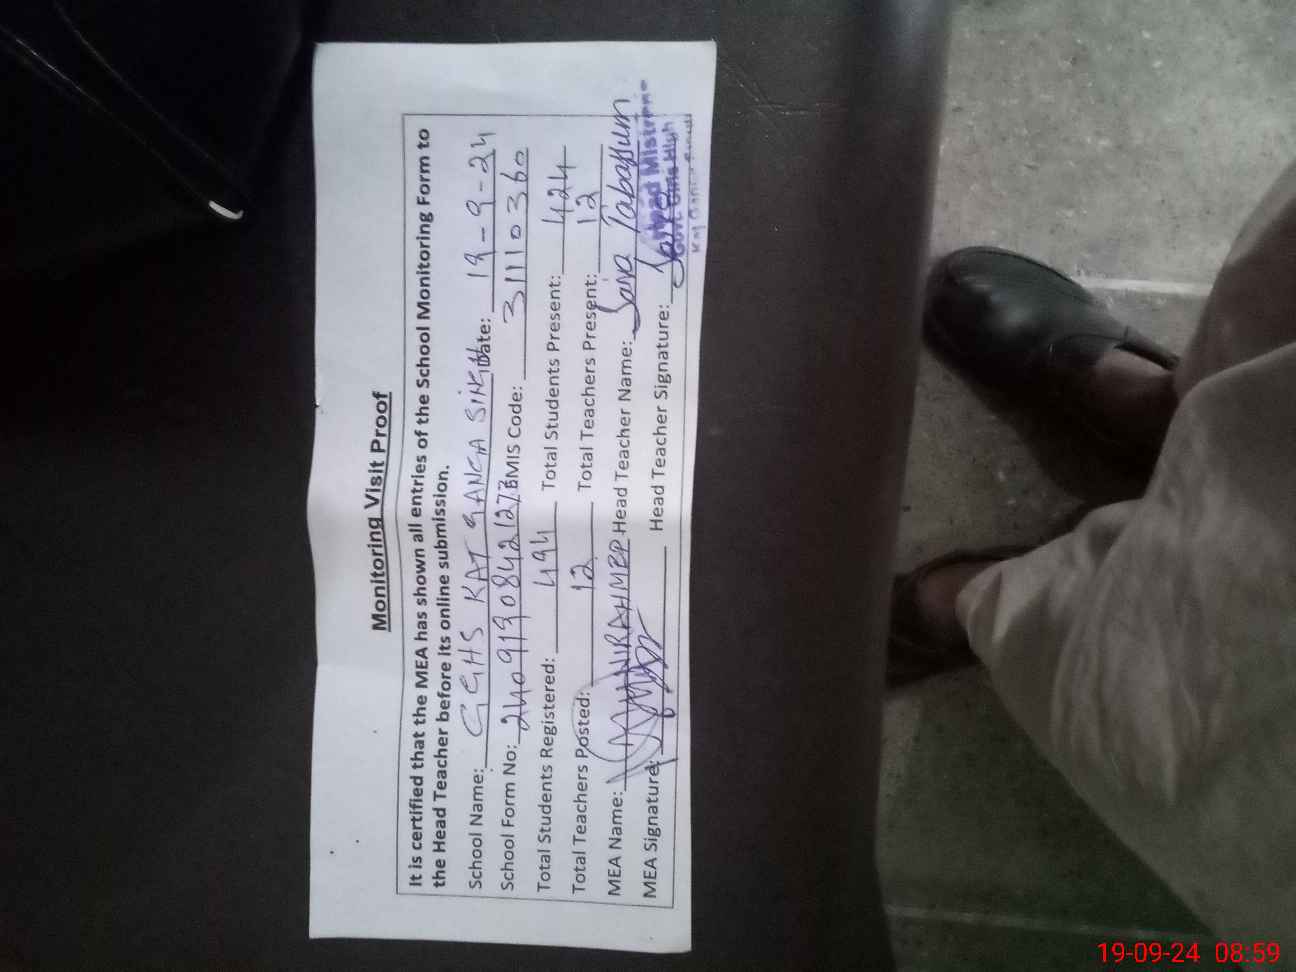 Monitoring Visit Proof
It is certified that the MEA has shown all entries of the School Monitoring Form to
the Head Teacher before its online submission.
School Name: GGHS KAT GANGA SINGH Date: 19-9-24
School Form No: 2409130842127 EMIS Code: 31110360
Total Students Registered: 494 Total Students Present: 424
Total Teachers Posted: 12 Total Teachers Present: 12
MEA Name: MUNIR AHMED Head Teacher Name: Saira Tabassum
MEA Signature: Head Teacher Signature:
Head Mistress
Govt. Girls High
19-09-24 08:59